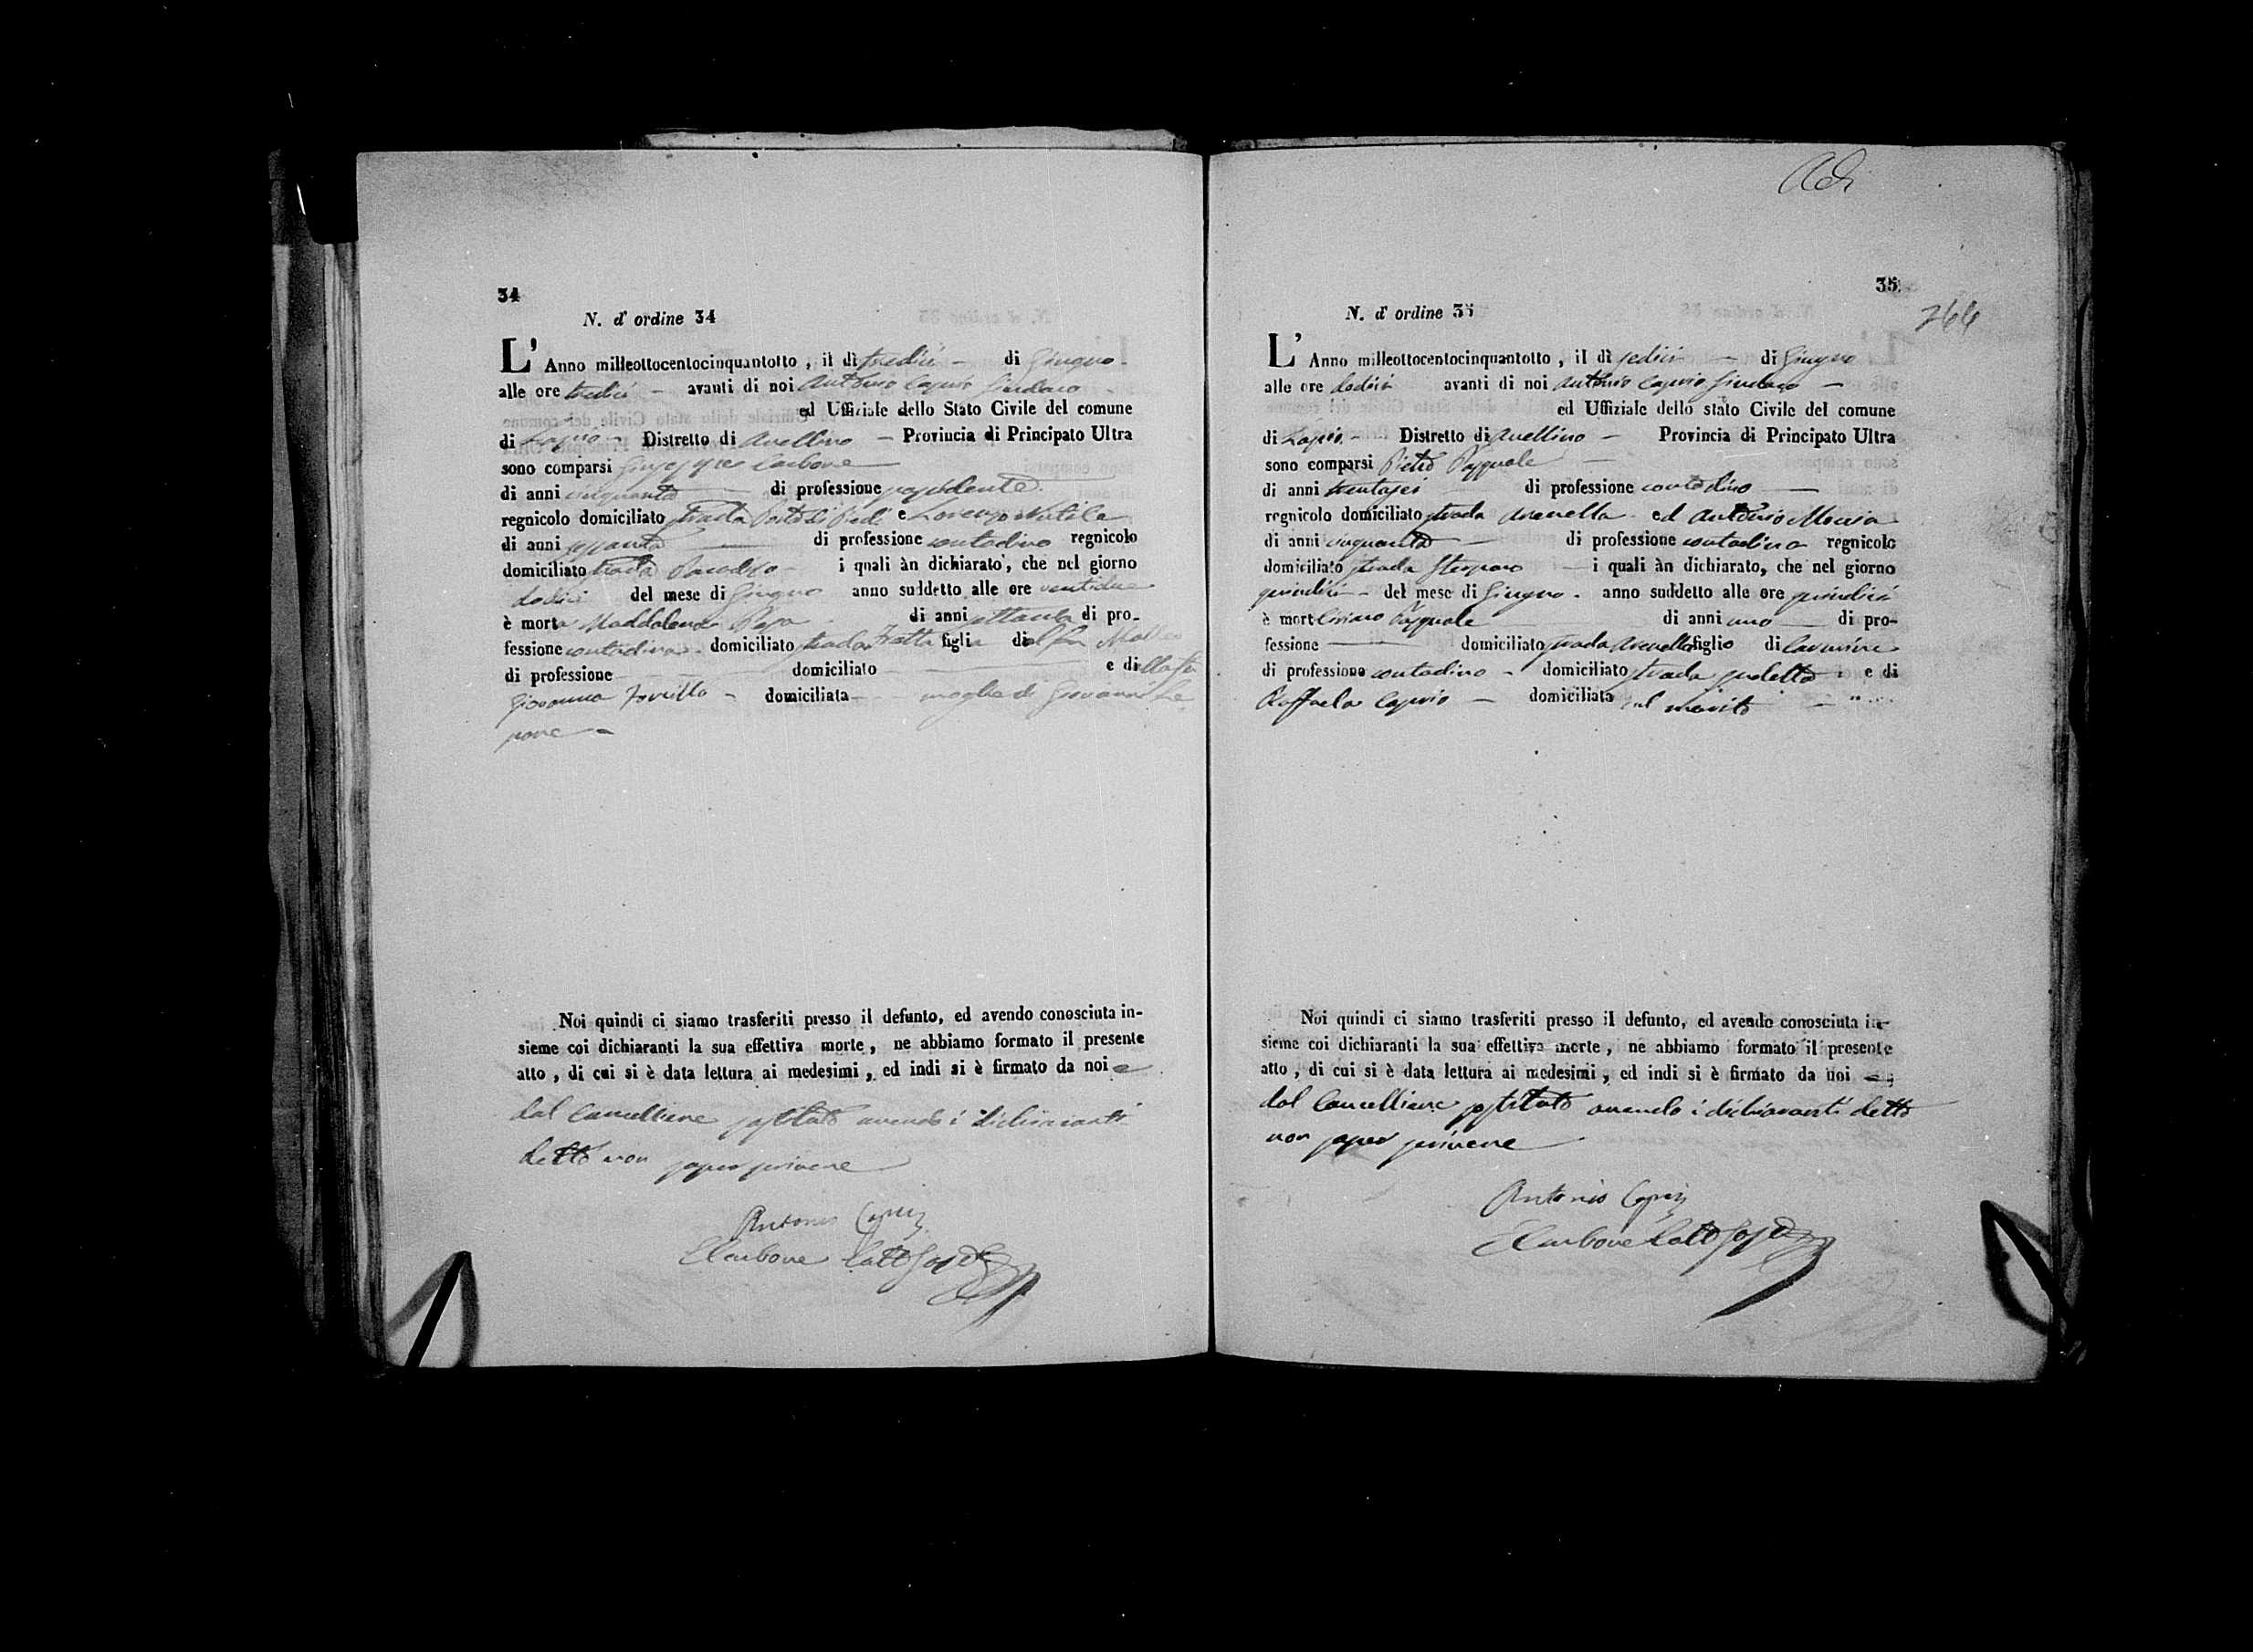 34
N. d' ordine 34
L' Anno milleottocentocinquantotto, il dì tredici di Giugno
alle ore tredici avanti di noi Antonio Caprio Sindaco
ed Uffiziale dello Stato Civile del comune
di Lapio Distretto di Avellino Provincia di Principato Ultra
sono comparsi Giuseppe Carbone
di anni cinquanta di professione possidente
regnicolo domiciliato strada e Lorenzo
di anni sessanta di professione contadino regnicolo
domiciliato strada i quali àn dichiarato, che nel giorno
dodici del mese di Giugno anno suddetto alle ore ventidue
è morta Maddalena di anni settanta di pro-
fessione contadina domiciliato strada Fratta figlia del fu
di professione domiciliato e della fu
Giovanna domiciliata moglie di Giovanni
Noi quindi ci siamo trasferiti presso il defunto, ed avendo conosciuta in-
sieme coi dichiaranti la sua effettiva morte, ne abbiamo formato il presente
atto, di cui si è data lettura ai medesimi, ed indi si è firmato da noi e
dal Cancelliere sostituto avendo i dichiaranti
detto non saper scrivere
Antonio Caprio
Carbone Sost
35
N. d' ordine 35
764
L' Anno milleottocentocinquantotto, il dì sedici di Giugno
alle ore dodici avanti di noi Antonio Caprio Sindaco
ed Uffiziale dello stato Civile del comune
di Lapio Distretto di Avellino Provincia di Principato Ultra
sono comparsi Pietro Pasquale
di anni trentasei di professione contadino
regnicolo domiciliato strada Arenella ed Antonio
di anni cinquanta di professione contadino regnicolo
domiciliato strada i quali àn dichiarato, che nel giorno
quindici del mese di Giugno anno suddetto alle ore quindici
è morto Ciriaco Pasquale di anni uno di pro-
fessione domiciliato strada Arenella figlio di
di professione contadino domiciliato strada sudetta e di
Raffaela Caprio domiciliata col marito
Noi quindi ci siamo trasferiti presso il defunto, ed avendo conosciuta in-
sieme coi dichiaranti la sua effettiva morte, ne abbiamo formato il presente
atto, di cui si è data lettura ai medesimi, ed indi si è firmato da noi e
dal Cancelliere sostituto avendo i dichiaranti detto
non saper scrivere
Antonio Caprio
Carbone Sost